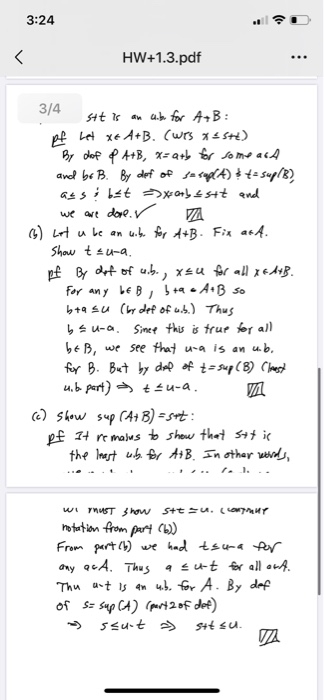 3:24
HW+1.3.pdf
3/4
s+t is an u.b. for A+B:
pf Let x∈A+B. (WTS x≤s+t)
By def of A+B, x=a+b for some a∈A
and b∈B. By def of s=sup(A) & t=sup(B),
a≤s & b≤t ⇒ x=a+b≤s+t and
we are done. ✓
(b) Let u be an u.b. for A+B. Fix a∈A.
Show t≤u-a.
pf By def of u.b., x≤u for all x∈A+B.
For any b∈B, b+a∈A+B so
b+a≤u (by def of u.b.) Thus
b≤u-a. Since this is true for all
b∈B, we see that u-a is an u.b.
for B. But by def of t=sup(B) (least
u.b. part) ⇒ t≤u-a.
(c) Show sup(A+B)=s+t:
pf It remains to show that s+t is
the least u.b. for A+B. In other words,
we must show s+t≤u. (continue
notation from part (b))
From part (b) we had t≤u-a for
any a∈A. Thus a≤u-t for all a∈A.
Thu u-t is an u.b. for A. By def
of s=sup(A) (part 2 of def)
⇒ s≤u-t ⇒ s+t≤u.